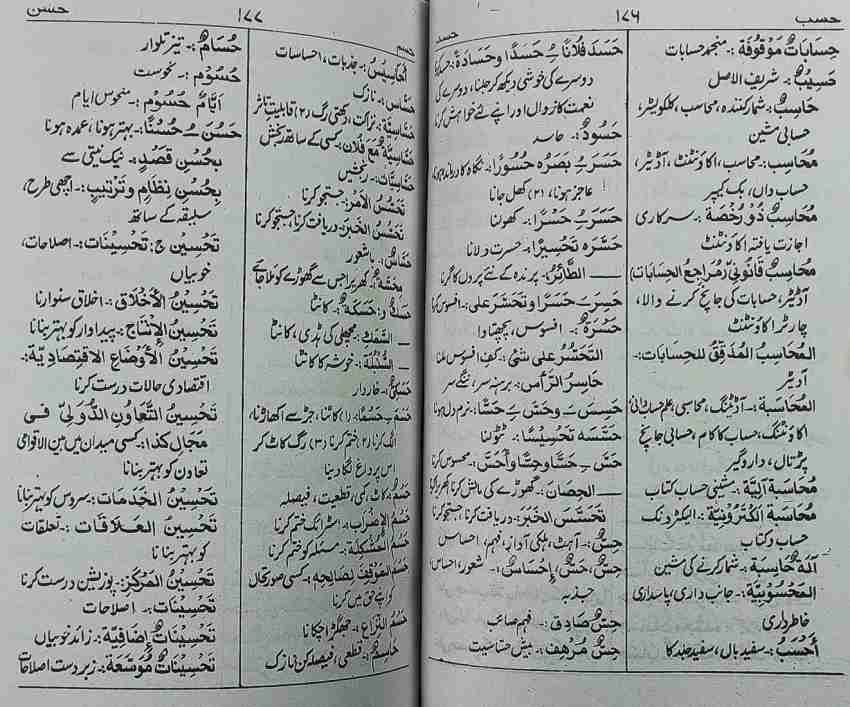 حسب
۱۷۶
حسد
حِسَابَاتٌ مَوْقُوفَة :۔ منجمد حسابات
حَسِيبٌ :۔ شریف الاصل
حَاسِبٌ :۔ شمار کنندہ، محاسب، کلکولیٹر،
حسابی مشین
مُحَاسِب :۔ محاسب، اکاؤنٹنٹ، آڈیٹر،
حساب داں، بک کیپر
مُحَاسِبٌ ذُوْ رُخْصَة :۔ سرکاری
اجازت یافتہ اکاؤنٹنٹ
مُحَاسِبٌ قَانُونِيٌّ (مُرَاجِعُ الحِسَابَات)
آڈیٹر، حسابات کی جانچ کرنے والا،
چارٹرڈ اکاؤنٹنٹ
المُحَاسِبُ المُدَقِّقُ لِلحِسَابَات :۔
آڈیٹر
المُحَاسَبَة :۔ آڈٹنگ، محاسبی، علم حساب دانی
اکاؤنٹنگ، حساب کا کام، حسابی جانچ
پڑتال، داروگیر
مُحَاسَبَة آلِيَّة :۔ مشینی حساب کتاب
مُحَاسَبَة اَلكْتُرُونِيَّة :۔ الیکٹرونک
حساب و کتاب
آلَةٌ حَاسِبَة :۔ شمار کرنے کی مشین
المَحْسُوبِيَّة :۔ جانب داری، پاسداری
خاطرداری
أَحْسَبُ :۔ سفید بال، سفید جلد کا
حَسَدَ فُلَانًا ـُ حَسَدًا وحَسَادَةً :۔ حسد کرنا
دوسرے کی خوشی دیکھ کر جلنا، دوسرے کی
نعمت کا زوال اور اپنے لئے خواہش کرنا
حَسُودٌ :۔ حاسد
حَسَرَ ـِ بَصَرُه حُسُورًا :۔ نگاہ کا درماندہ ہونا،
عاجز ہونا، (۲) کھل جانا
حَسَرَ ـِ حَسْرًا :۔ کھولنا
حَسَّرَه تَحْسِيرًا :۔ حسرت دلانا
ــــ الطَّائِرُ :۔ پرندہ کے نئے پروں کا گرنا
حَسِرَ ـَ حَسْرًا وتَحَسَّرَ على :۔ افسوس کرنا
حَسْرَةٌ :۔ افسوس، پچھتاوا
التَحَسُّرُ على شئ :۔ کف افسوس ملنا
حَاسِرُ الرَّأس :۔ برہنہ سر، ننگے سر
حَسِسَ ـَ وحَسَّ ـَ حَسًّا :۔ نرم دل ہونا
حَسَّسَه تَحْسِيسًا :۔ ٹٹولنا
حَسَّ ـِ حَسًّا وحِسًّا وأَحَسَّ :۔ محسوس کرنا
ــــ الحِصَانَ :۔ گھوڑے کی مالش کرنا
تَحَسَّسَ الخَبَرَ :۔ دریافت کرنا، جستجو کرنا
حِسٌّ :۔ آہٹ، ہلکی آواز، فہم، احساس
حِسٌّ، حَسٌّ، إحْسَاسٌ :۔ شعور، احساس،
جذبہ
حِسٌّ صَادِق :۔ فہم صائب
حِسٌّ مُرْهَف :۔ بیش حساسیت
حسم
۱۷۷
حسن
أَحَاسِيسُ :۔ جذبات، احساسات
حَسَّاس :۔ نازک
حَسَّاسِيَّة :۔ نزاکت، دکھتی رگ (۲) قابلیتِ تاثر
حَسَّاسِيَّة مَعَ فُلَان :۔ کسی کے ساتھ رنجش
حَسَّاسِيَّات :۔ رنجشیں
تَحَسُّسُ الأَمْر :۔ جستجو کرنا
تَحَسُّسُ الخَبَر :۔ دریافت کرنا، جستجو کرنا
حَسَّاسٌ :۔ باشعور
مِحَسَّة :۔ کھریرا جس سے گھوڑے کو ملا جائے
حَسَكٌ وحَسَكَةٌ :۔ کانٹا
ــــ السَّمَك :۔ مچھلی کی ہڈی، کانٹا
ــــ السُّنْبُلَة :۔ خوشہ کا کانٹا
حَسَكِيٌّ :۔ خاردار
حَسَمَ ـِ حَسْمًا :۔ (۱) کاٹنا، جڑ سے اکھاڑنا،
الگ کرنا (۲) ختم کرنا (۳) رگ کاٹ کر
اس پر داغ لگا دینا
حَسْمٌ :۔ کاٹ، کمی، قطعیت، فیصلہ
حَسْمُ الإضْرَاب :۔ اسٹرائک ختم کرنا
حَسْمُ المُشْكِلَة :۔ مسئلہ کو ختم کرنا
حَسْمُ المَوْقِف لِصَالِحِه :۔ کسی صورتحال
کو اپنے حق میں کرنا
حَسْمُ النِّزَاع :۔ جھگڑا چکانا
حَاسِمٌ :۔ قطعی، فیصلہ کن، نازک
حُسَامٌ :۔ تیز تلوار
حُسُوْم :۔ نحوست
أَيَّامٌ حُسُوْم :۔ منحوس ایام
حَسُنَ ـُ حُسْنًا :۔ بہتر ہونا، عمدہ ہونا
بِحُسْنِ قَصْدٍ :۔ نیک نیتی سے
بِحُسْنِ نِظَامٍ وتَرْتِيبٍ :۔ اچھی طرح،
سلیقہ کے ساتھ
تَحْسِين ج: تَحْسِينَات :۔ اصلاحات،
خوبیاں
تَحْسِينُ الأَخْلَاق :۔ اخلاق سنوارنا
تَحْسِينُ الإنْتَاج :۔ پیداوار کو بہتر بنانا
تَحْسِينُ الأَوْضَاعِ الاقْتِصَادِيَّة :۔
اقتصادی حالات درست کرنا
تَحْسِينُ التَّعَاوُنِ الدُّوَلِيّ فى
مَجَالِ كذا :۔ کسی میدان میں بین الاقوامی
تعاون کو بہتر بنانا
تَحْسِينُ الخِدْمَات :۔ سروس کو بہتر بنانا
تَحْسِينُ العَلَاقَات :۔ تعلقات
کو بہتر بنانا
تَحْسِينُ المَرْكَز :۔ پوزیشن درست کرنا
تَحْسِينَات :۔ اصلاحات
تَحْسِينَاتٌ إضَافِيَّة :۔ زائد خوبیاں
تَحْسِينَاتٌ مُوَسَّعَة :۔ زبردست اصلاحات